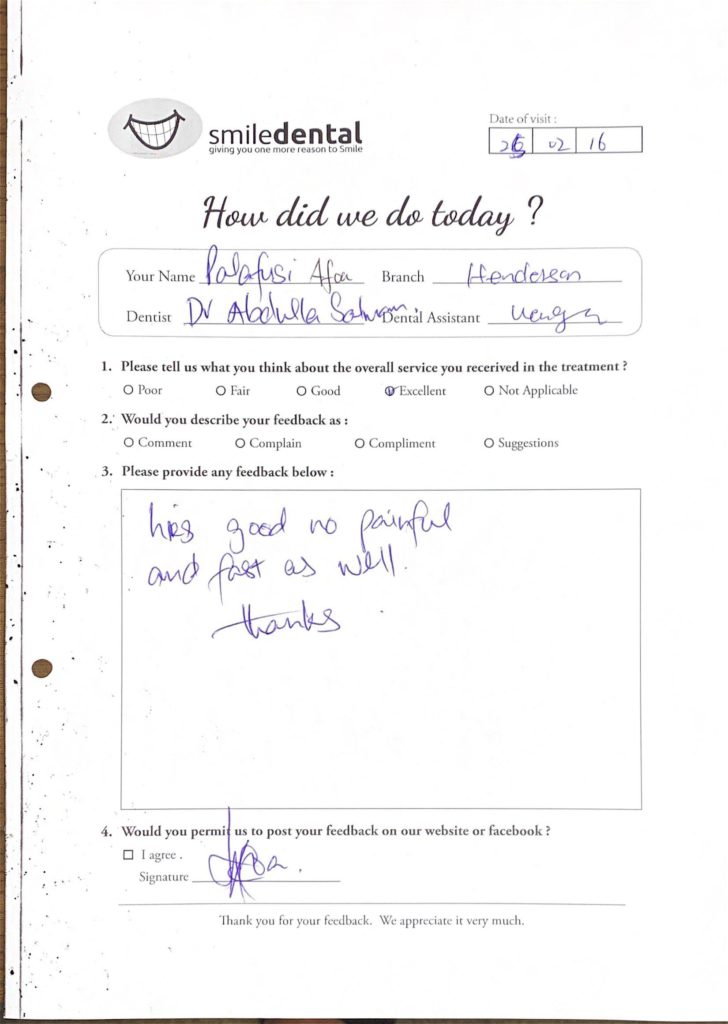 smiledental
giving you one more reason to Smile
Date of visit :
26 02 16
How did we do today ?
Your Name Palafusi Afoa Branch Henderson
Dentist Dr Abdulla Salman Dental Assistant
1. Please tell us what you think about the overall service you recerived in the treatment ?
Poor Fair Good Excellent Not Applicable
2. Would you describe your feedback as :
Comment Complain Compliment Suggestions
3. Please provide any feedback below :
his good no painful
and fast as well.
thanks
4. Would you permit us to post your feedback on our website or facebook ?
I agree .
Signature
Thank you for your feedback. We appreciate it very much.